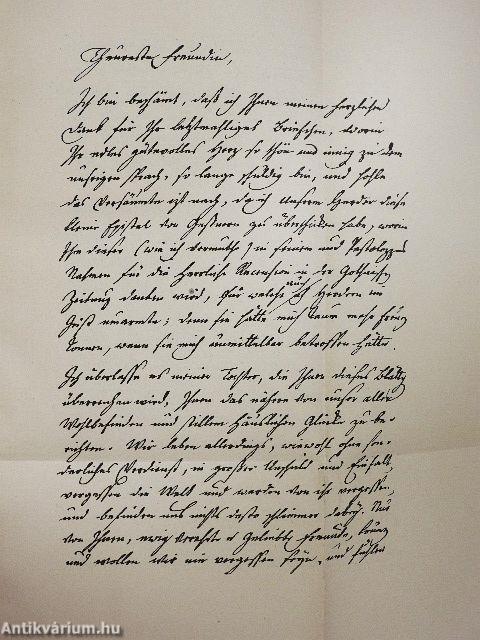 Theureste Freundin,
Ich bin beschämt, daß ich Ihnen meinen herzlichen
Dank für Ihr letztmaliges Briefchen, worin
Ihr edles gütevolles Herz so schön und innig zu dem
meinigen sprach, so lange schuldig bin, und hohle
das Versäumte izt nach, da ich Unserm Herder diese
kleine Epistel von Geßnern zu überschicken habe, worin
Ihm dieser (wie ich vermuthe) in seinem und Pestalozzis
Nahmen für die Herrliche Recension in der Gothaischen
Zeitung danken wird, für welche auch ich Herdern im
Geist umarmte; denn sie hätte mich kaum mehr freuen
können, wenn sie mich unmittelbar betroffen hätte.
Ich überlasse es meiner Tochter, die Ihnen dieses Blättchen
überreichen wird, Ihnen das nähere von unser aller
Wohlbefinden und stillem Häuslichen Glücke zu be-
richten. Wir leben allerdings, wiewohl ohne son-
derliches Verdienst, in großer Unschuld und Einfalt,
vergessen die Welt und werden von ihr vergessen,
und befinden uns nichts desto schlimmer dabey. Nur
von Ihnen, ewig Verehrte und Geliebte Freunde, können
und wollen wir nie vergessen seyn, und fühlen
Antikvárium.hu